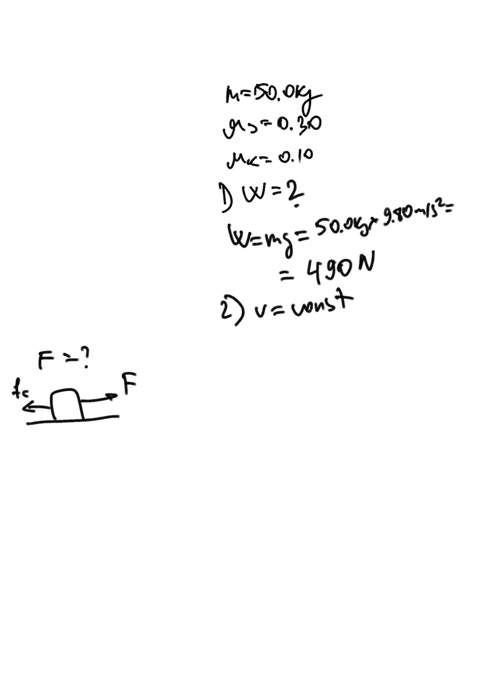 m=50.0kg
μs=0.30
μk=0.10
1) W=?
W=mg=50.0kg×9.80m/s²=
=490N
2) v=const
F=?
fc F